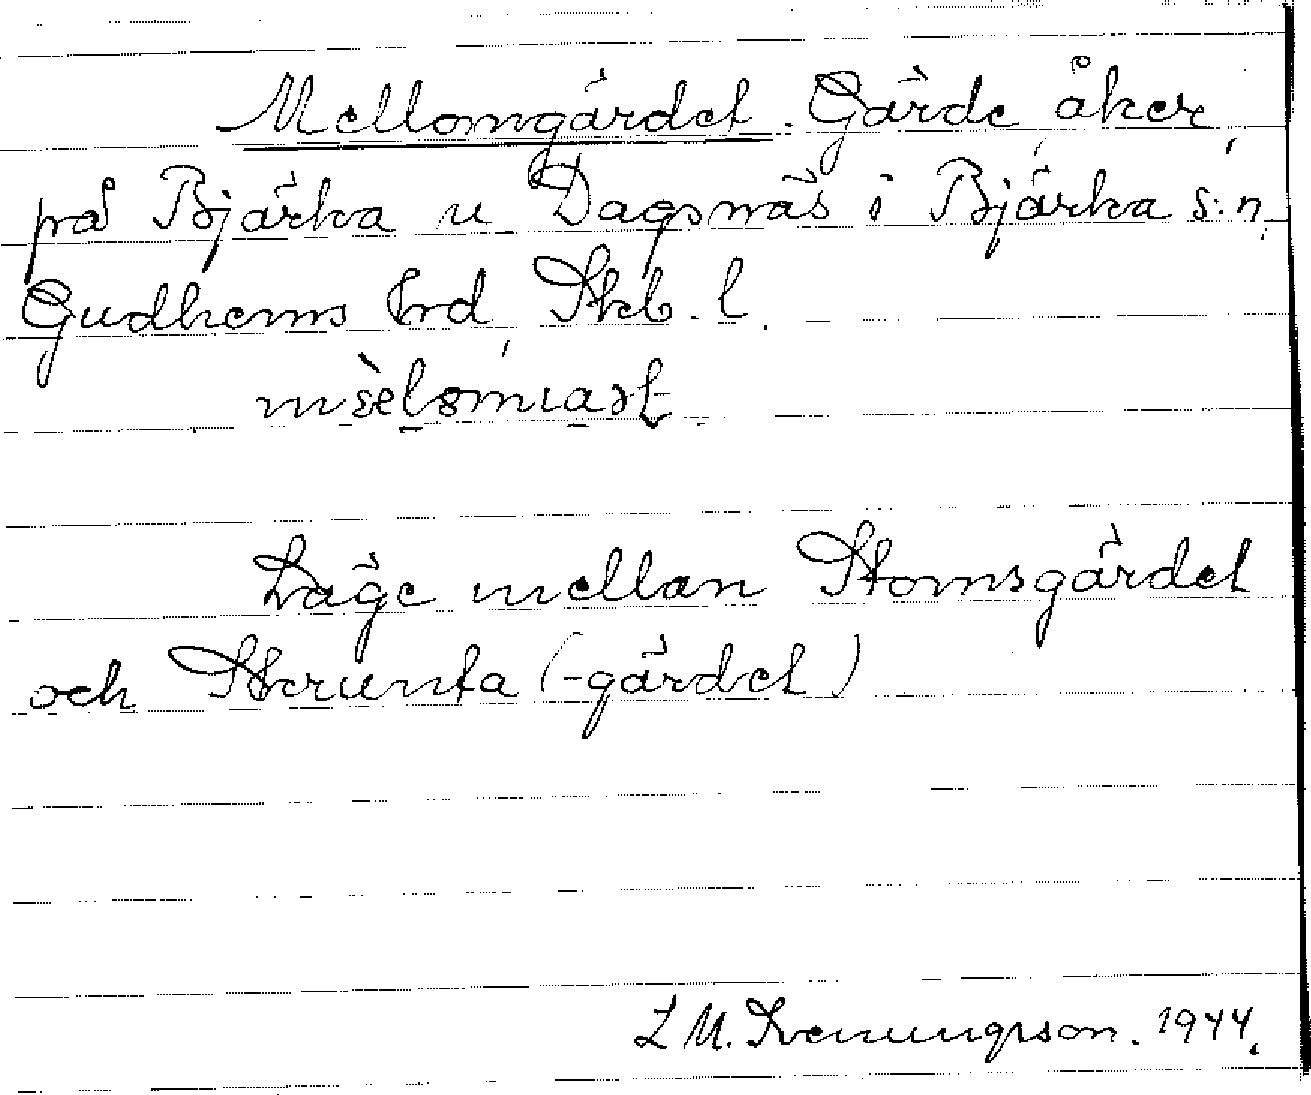 Mellomgärdet. Gärde, åker,
på Bjärka u Dagsnäs i Bjärka s:n,
Gudhems hrd, Skb. l.
Läge mellan Stomsgärdet
och Skrunta (-gärdet)
L M. Svenungsson. 1944.